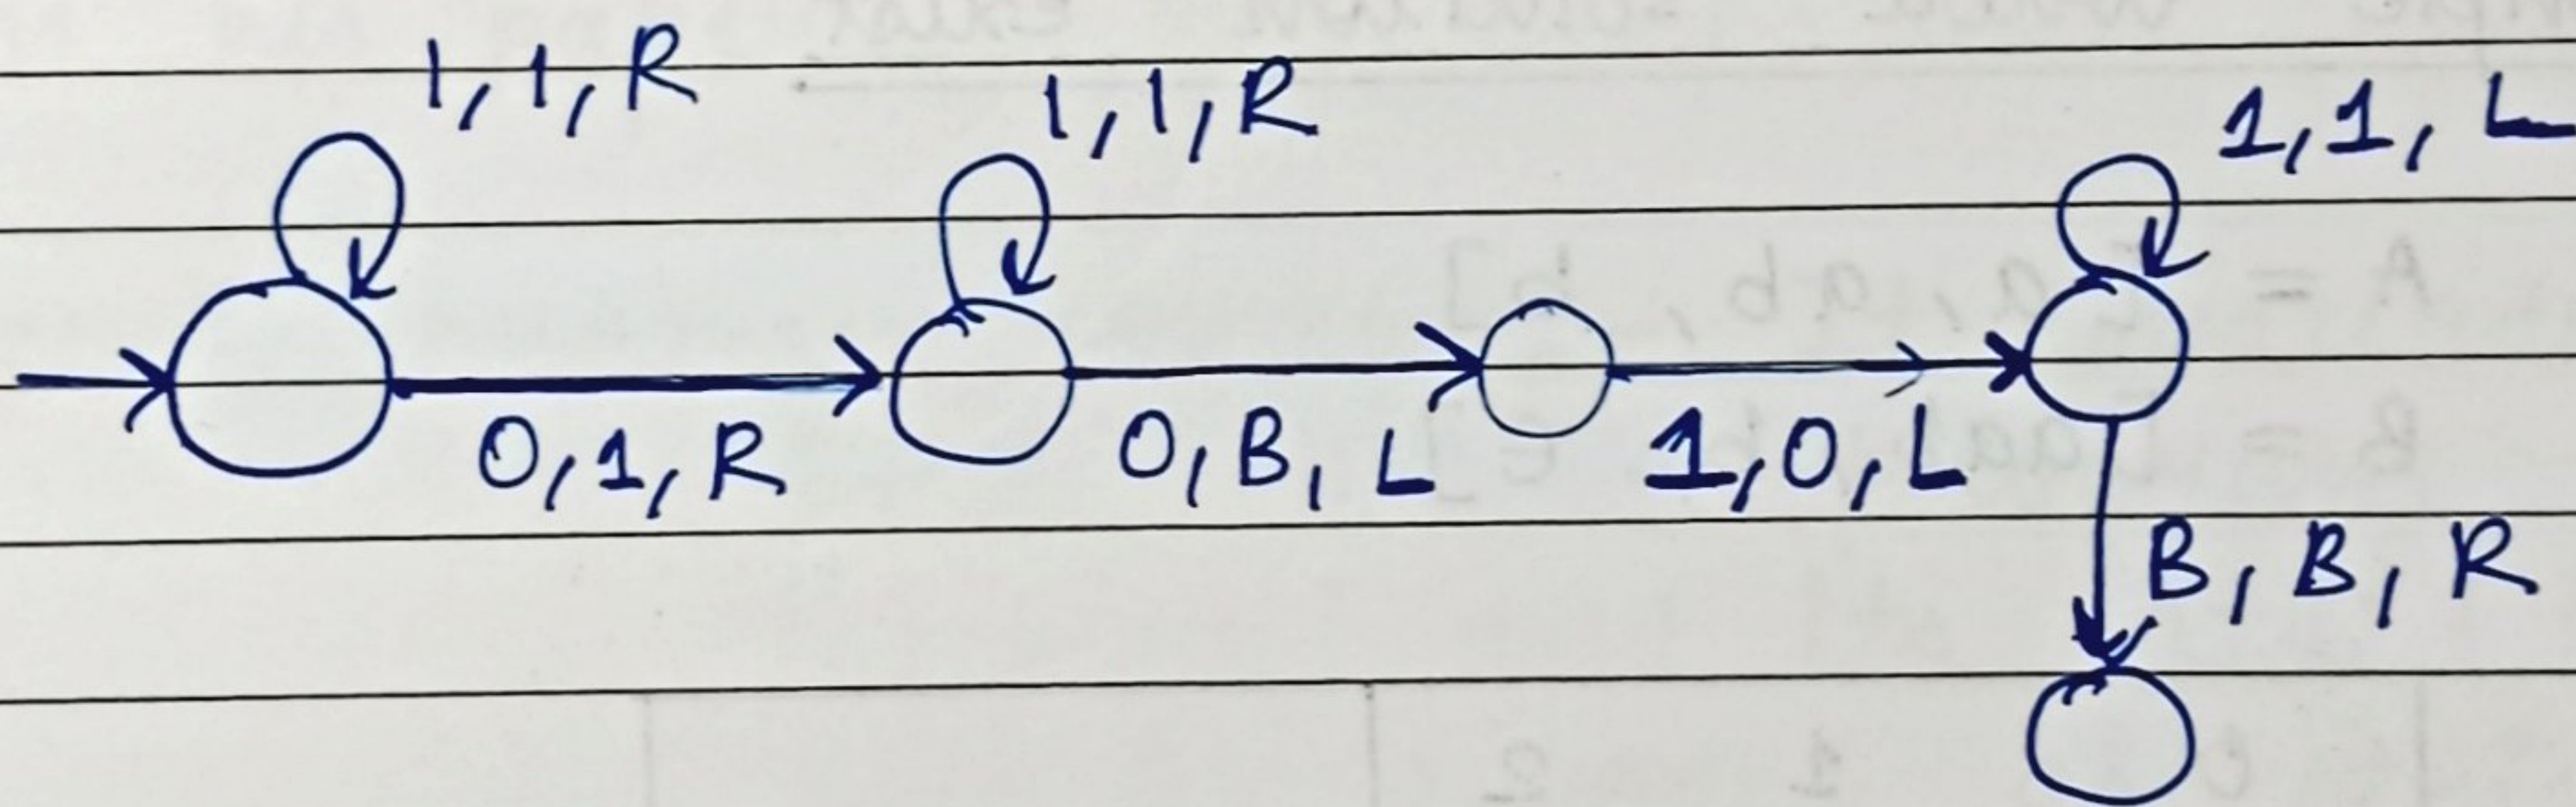 1, 1, R
1, 1, R
1, 1, L
0, 1, R
0, B, L
1, 0, L
B, B, R